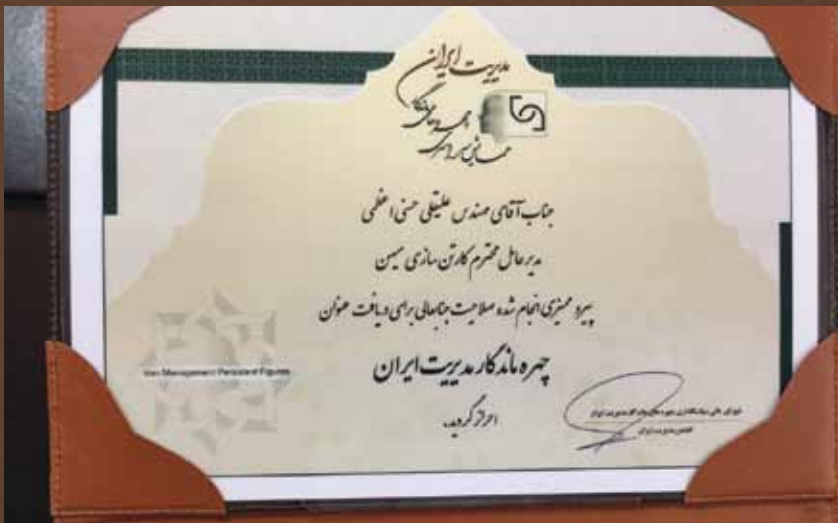 مدیریت ایران
چهره های ماندگار
همایش سراسری
جناب آقای مهندس علینقی حسنی اعظمی
مدیرعامل محترم کارتن سازی میهن
پیرو ممیزی انجام شده صلاحیت جنابعالی برای دریافت عنوان
چهره ماندگار مدیریت ایران
احراز گردید.
Iran Management Persistent Figures